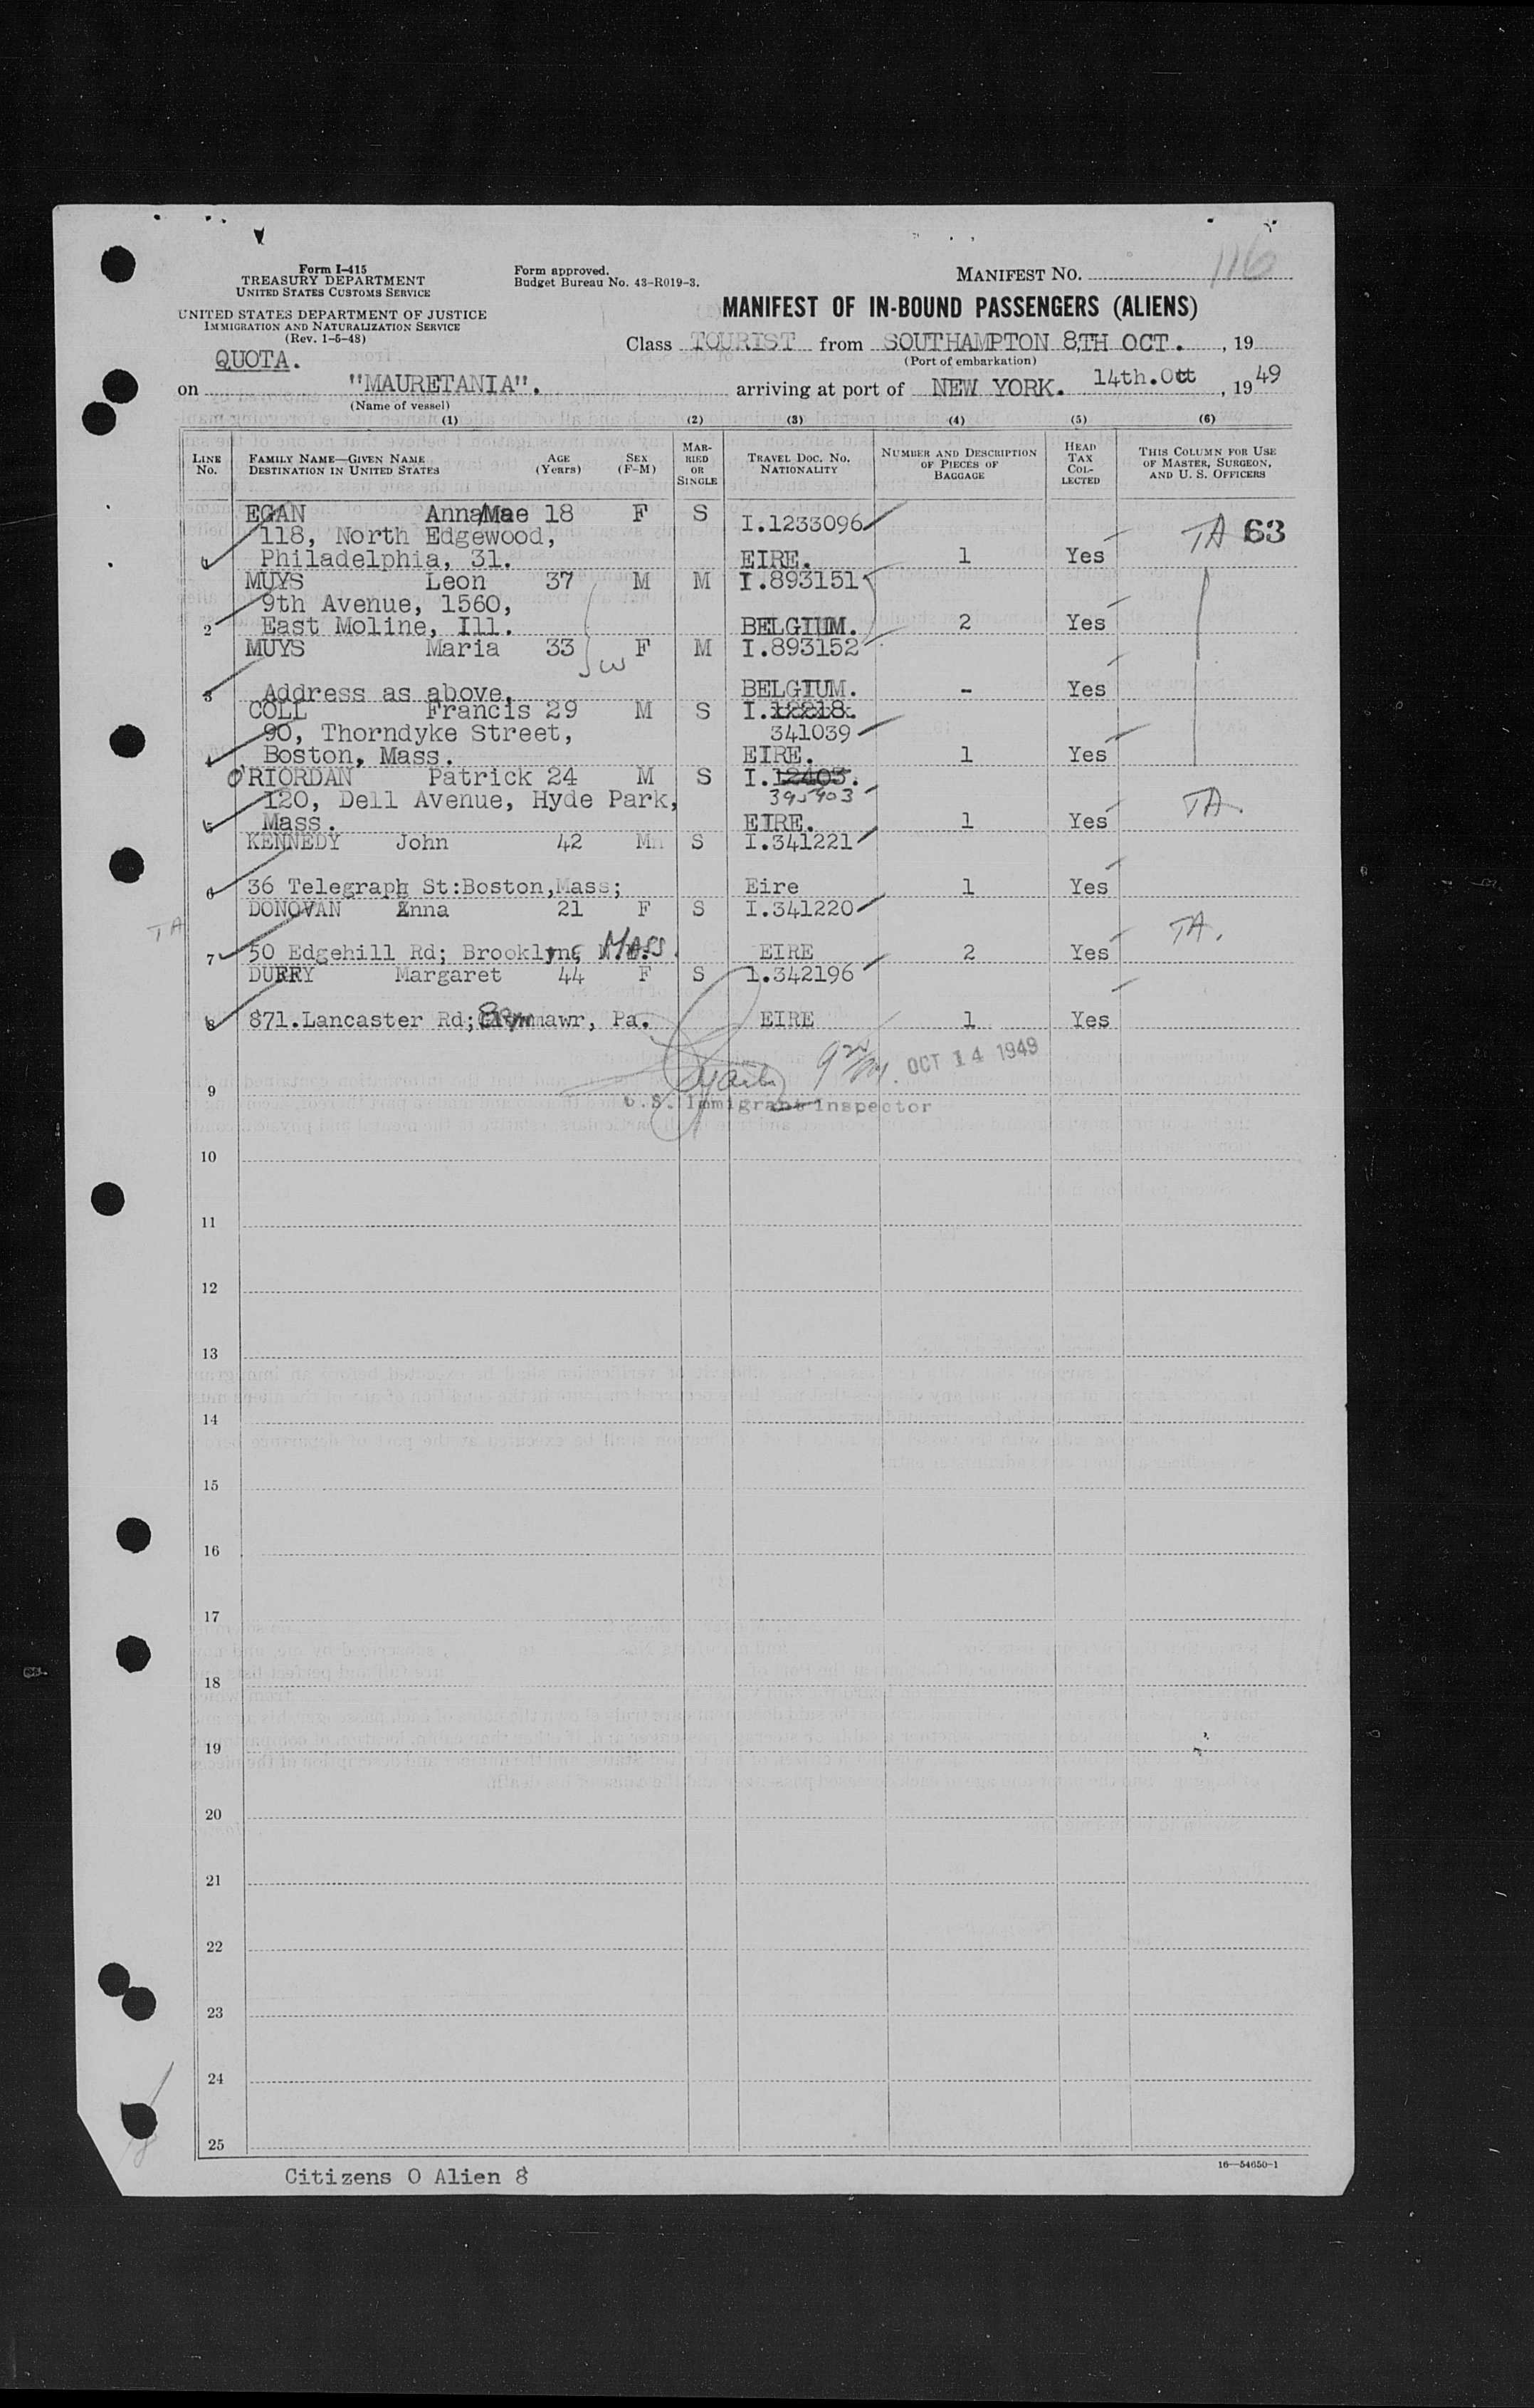 Form I-415
TREASURY DEPARTMENT
UNITED STATES CUSTOMS SERVICE
UNITED STATES DEPARTMENT OF JUSTICE
IMMIGRATION AND NATURALIZATION SERVICE
(Rev. 1-5-48)
Form approved.
Budget Bureau No. 43-R019-3.
MANIFEST NO. 116
MANIFEST OF IN-BOUND PASSENGERS (ALIENS)
Class TOURIST from SOUTHAMPTON 8TH OCT. , 19
(Port of embarkation)
QUOTA.
on "MAURETANIA". arriving at port of NEW YORK. 14th.Oct , 1949
(Name of vessel)
(1) (2) (3) (4) (5) (6)
LINE No. FAMILY NAME—GIVEN NAME DESTINATION IN UNITED STATES AGE (Years) SEX (F-M) MARRIED OR SINGLE TRAVEL DOC. NO. NATIONALITY NUMBER AND DESCRIPTION OF PIECES OF BAGGAGE HEAD TAX COLLECTED THIS COLUMN FOR USE OF MASTER, SURGEON, AND U. S. OFFICERS
EGAN Anna/Mae 18 F S I.1233096
118, North Edgewood, TA 63
1 Philadelphia, 31. EIRE. 1 Yes
MUYS Leon 37 M M I.893151
9th Avenue, 1560,
2 East Moline, Ill. BELGIUM. 2 Yes
MUYS Maria 33 F M I.893152
3 Address as above. BELGIUM. - Yes
COLL Francis 29 M S I.12218.
90, Thorndyke Street, 341039
4 Boston, Mass. EIRE. 1 Yes
O'RIORDAN Patrick 24 M S I.12403.
120, Dell Avenue, Hyde Park, 395903 TA.
5 Mass. EIRE. 1 Yes
KENNEDY John 42 M S I.341221
6 36 Telegraph St:Boston,Mass; Eire 1 Yes
DONOVAN Anna 21 F S I.341220
TA TA.
7 50 Edgehill Rd; Brooklyn, MASS. EIRE 2 Yes
DUFFY Margaret 44 F S I.342196
8 871.Lancaster Rd; Brynmawr, Pa. EIRE 1 Yes
OCT 14 1949
9
U.S. Immigrant Inspector
10
11
12
13
14
15
16
17
18
19
20
21
22
23
24
25
16—54650-1
Citizens 0 Alien 8